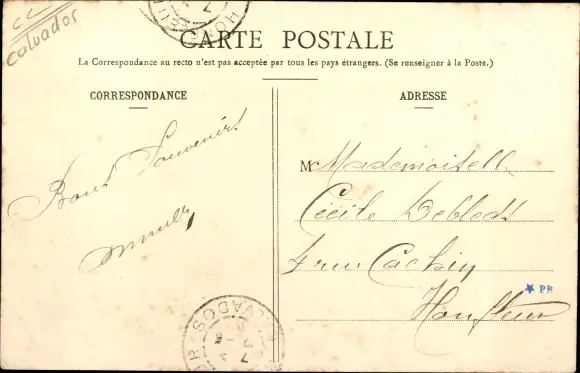 CC
Calvados
CARTE POSTALE
La Correspondance au recto n'est pas acceptée par tous les pays étrangers. (Se renseigner à la Poste.)
CORRESPONDANCE
ADRESSE
Bons Souvenirs
M Mademoiselle
Cécile
4 rue Cachin
Honfleur
★ PR
CALVADOS